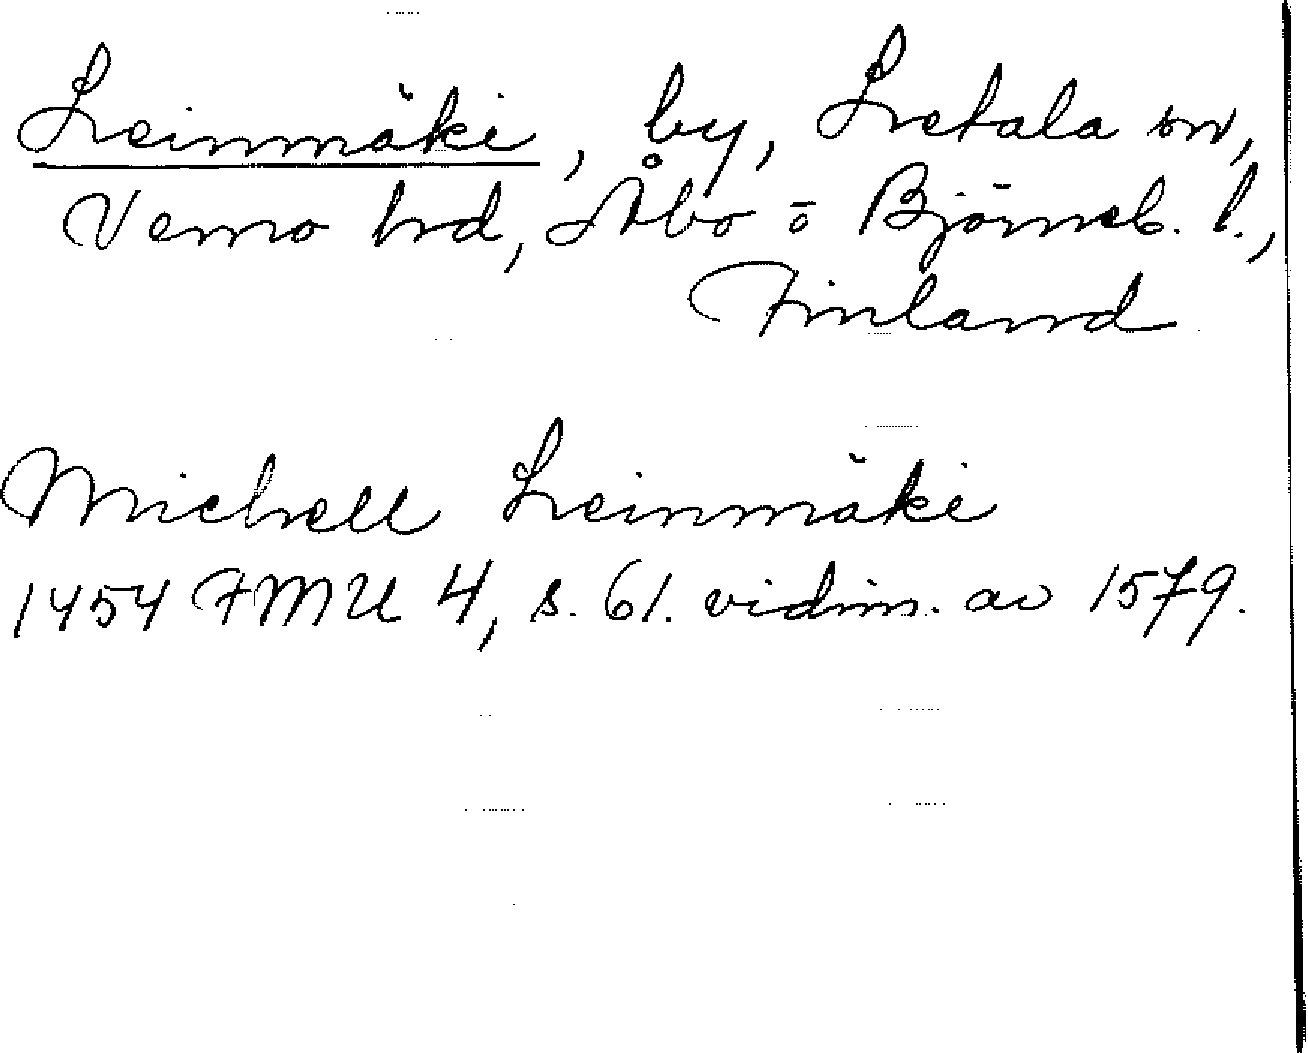 Leinmäki, by, Letala sn,
Vemo hrd, Åbo o Björneb. l.,
Finland
Michell Leinmäki
1454 FMU 4, s. 61. vidim. av 1579.